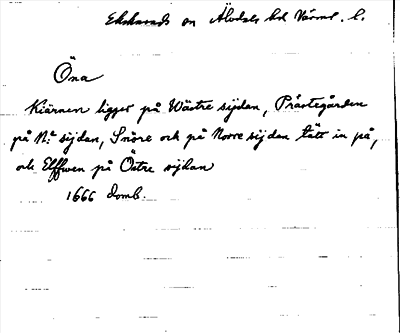 Ekshärads sn Älvdals hd Värml. l.
Öna
Kiärnen ligger på Wästre sijdan, Prästegården
på N:a sijdan, Snöre och på Norre sijdan tätt in på,
och Elffwen på Östre sijdan
1666 Domb.